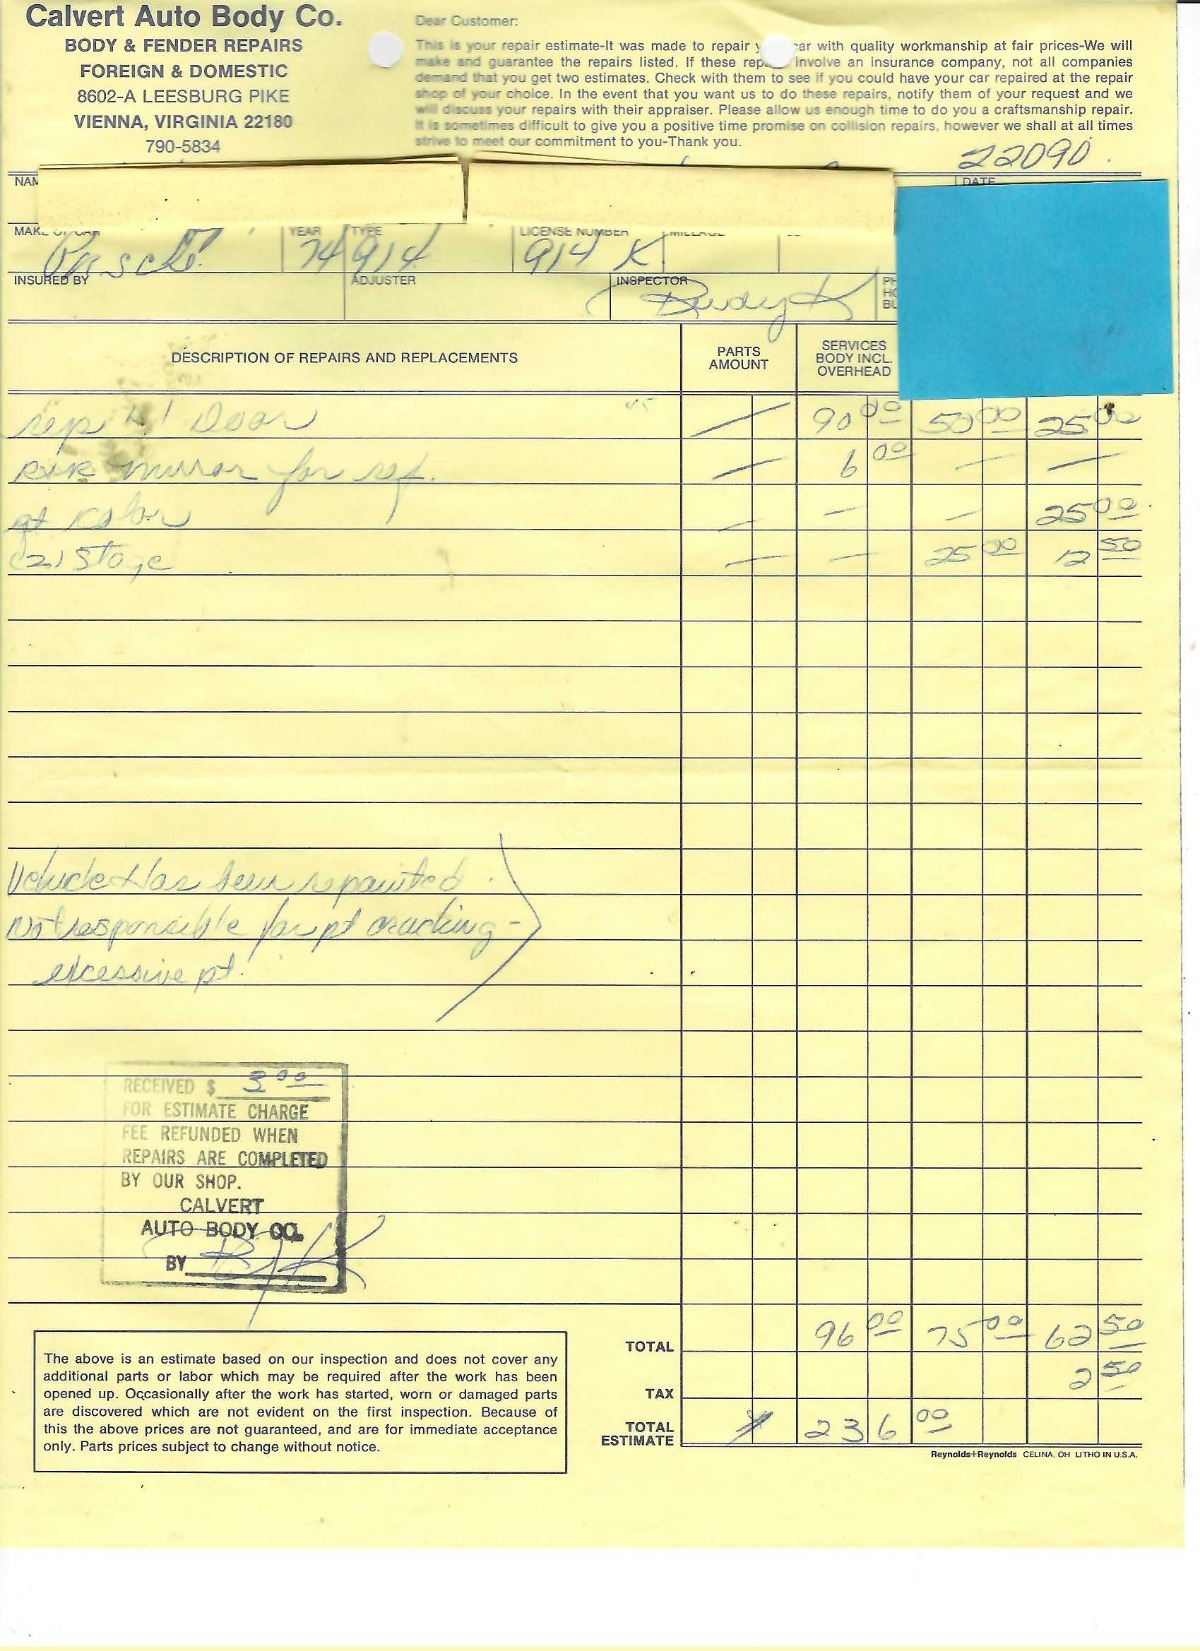 Calvert Auto Body Co.
BODY & FENDER REPAIRS
FOREIGN & DOMESTIC
8602-A LEESBURG PIKE
VIENNA, VIRGINIA 22180
790-5834
Dear Customer:
This is your repair estimate-It was made to repair y ar with quality workmanship at fair prices-We will
make and guarantee the repairs listed. If these rep involve an insurance company, not all companies
demand that you get two estimates. Check with them to see if you could have your car repaired at the repair
shop of your choice. In the event that you want us to do these repairs, notify them of your request and we
will discuss your repairs with their appraiser. Please allow us enough time to do you a craftsmanship repair.
It is sometimes difficult to give you a positive time promise on collision repairs, however we shall at all times
strive to meet our commitment to you-Thank you.
22090
NAM DATE
MAKE OF CAR YEAR TYPE LICENSE NUMBER MILEAGE
74 914 914 K
INSURED BY ADJUSTER INSPECTOR PH
HO
BU
DESCRIPTION OF REPAIRS AND REPLACEMENTS PARTS AMOUNT SERVICES BODY INCL. OVERHEAD
Door — 90 00 50 00 25 00
R&R mirror for ref. — 6 00 — —
— — — 25 00
(2) Stage — — 25 00 12 50
Vehicle Has been repainted.
Not responsible for pt cracking -
excessive pt.
RECEIVED $ 3 00
FOR ESTIMATE CHARGE
FEE REFUNDED WHEN
REPAIRS ARE COMPLETED
BY OUR SHOP.
CALVERT
AUTO BODY CO.
BY
The above is an estimate based on our inspection and does not cover any
additional parts or labor which may be required after the work has been
opened up. Occasionally after the work has started, worn or damaged parts
are discovered which are not evident on the first inspection. Because of
this the above prices are not guaranteed, and are for immediate acceptance
only. Parts prices subject to change without notice.
TOTAL 96 00 75 00 62 50
TAX 2 50
TOTAL ESTIMATE 236 00
Reynolds+Reynolds CELINA, OH LITHO IN U.S.A.